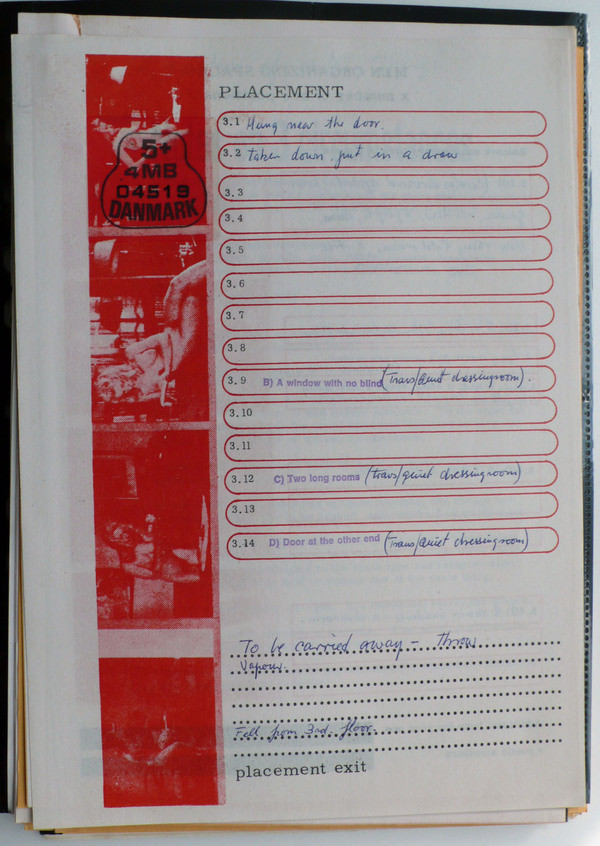 PLACEMENT
3.1 Hung near the door.
3.2 taken down, put in a draw
3.3
3.4
3.5
3.6
3.7
3.8
3.9 B) A window with no blind (trans/quiet dressingroom).
3.10
3.11
3.12 C) Two long rooms (trans/quiet dressingroom)
3.13
3.14 D) Door at the other end (trans/quiet dressingroom)
To be carried away - throw
Vapour.
Fall from 3rd. floor.
placement exit
5+
4MB
04519
DANMARK